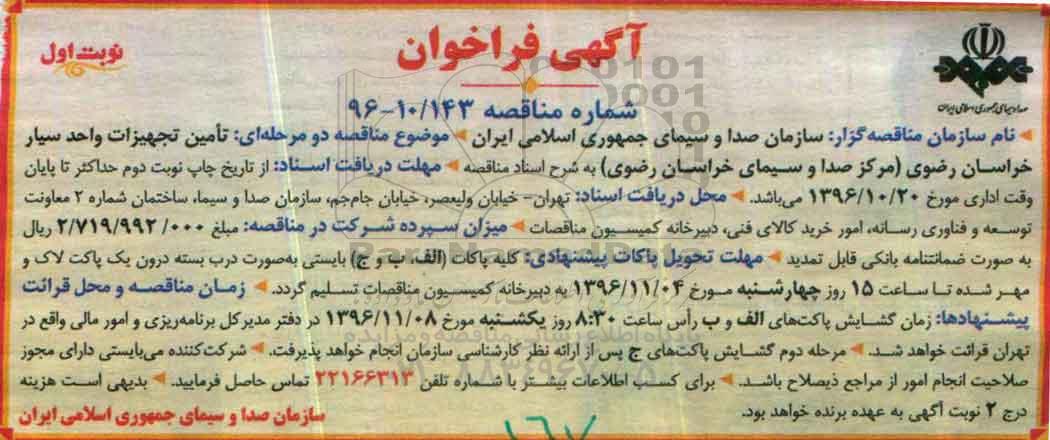 آگهی فراخوان
نوبت اول
صدا و سیمای جمهوری اسلامی ایران
شماره مناقصه ۱۰/۱۴۳-۹۶
نام سازمان مناقصه‌گزار: سازمان صدا و سیمای جمهوری اسلامی ایران موضوع مناقصه دو مرحله‌ای: تأمین تجهیزات واحد سیار
خراسان رضوی (مرکز صدا و سیمای خراسان رضوی) به شرح اسناد مناقصه مهلت دریافت اسناد: از تاریخ چاپ نوبت دوم حداکثر تا پایان
وقت اداری مورخ ۱۳۹۶/۱۰/۲۰ می‌باشد. محل دریافت اسناد: تهران- خیابان ولیعصر، خیابان جام‌جم، سازمان صدا و سیما، ساختمان شماره ۲ معاونت
توسعه و فناوری رسانه، امور خرید کالای فنی، دبیرخانه کمیسیون مناقصات میزان سپرده شرکت در مناقصه: مبلغ ۲/۷۱۹/۹۹۲/۰۰۰ ریال
به صورت ضمانتنامه بانکی قابل تمدید مهلت تحویل پاکات پیشنهادی: کلیه پاکات (الف، ب و ج) بایستی به‌صورت درب بسته درون یک پاکت لاک و
مهر شده تا ساعت ۱۵ روز چهارشنبه مورخ ۱۳۹۶/۱۱/۰۴ به دبیرخانه کمیسیون مناقصات تسلیم گردد. زمان مناقصه و محل قرائت
پیشنهادها: زمان گشایش پاکت‌های الف و ب رأس ساعت ۸:۳۰ روز یکشنبه مورخ ۱۳۹۶/۱۱/۰۸ در دفتر مدیرکل برنامه‌ریزی و امور مالی واقع در
تهران قرائت خواهد شد. مرحله دوم گشایش پاکت‌های ج پس از ارائه نظر کارشناسی سازمان انجام خواهد پذیرفت. شرکت‌کننده می‌بایستی دارای مجوز
صلاحیت انجام امور از مراجع ذیصلاح باشد. برای کسب اطلاعات بیشتر با شماره تلفن ۲۲۱۶۶۳۱۳ تماس حاصل فرمایید. بدیهی است هزینه
درج ۲ نوبت آگهی به عهده برنده خواهد بود.
سازمان صدا و سیمای جمهوری اسلامی ایران
۱۶۷
ParsNamadData